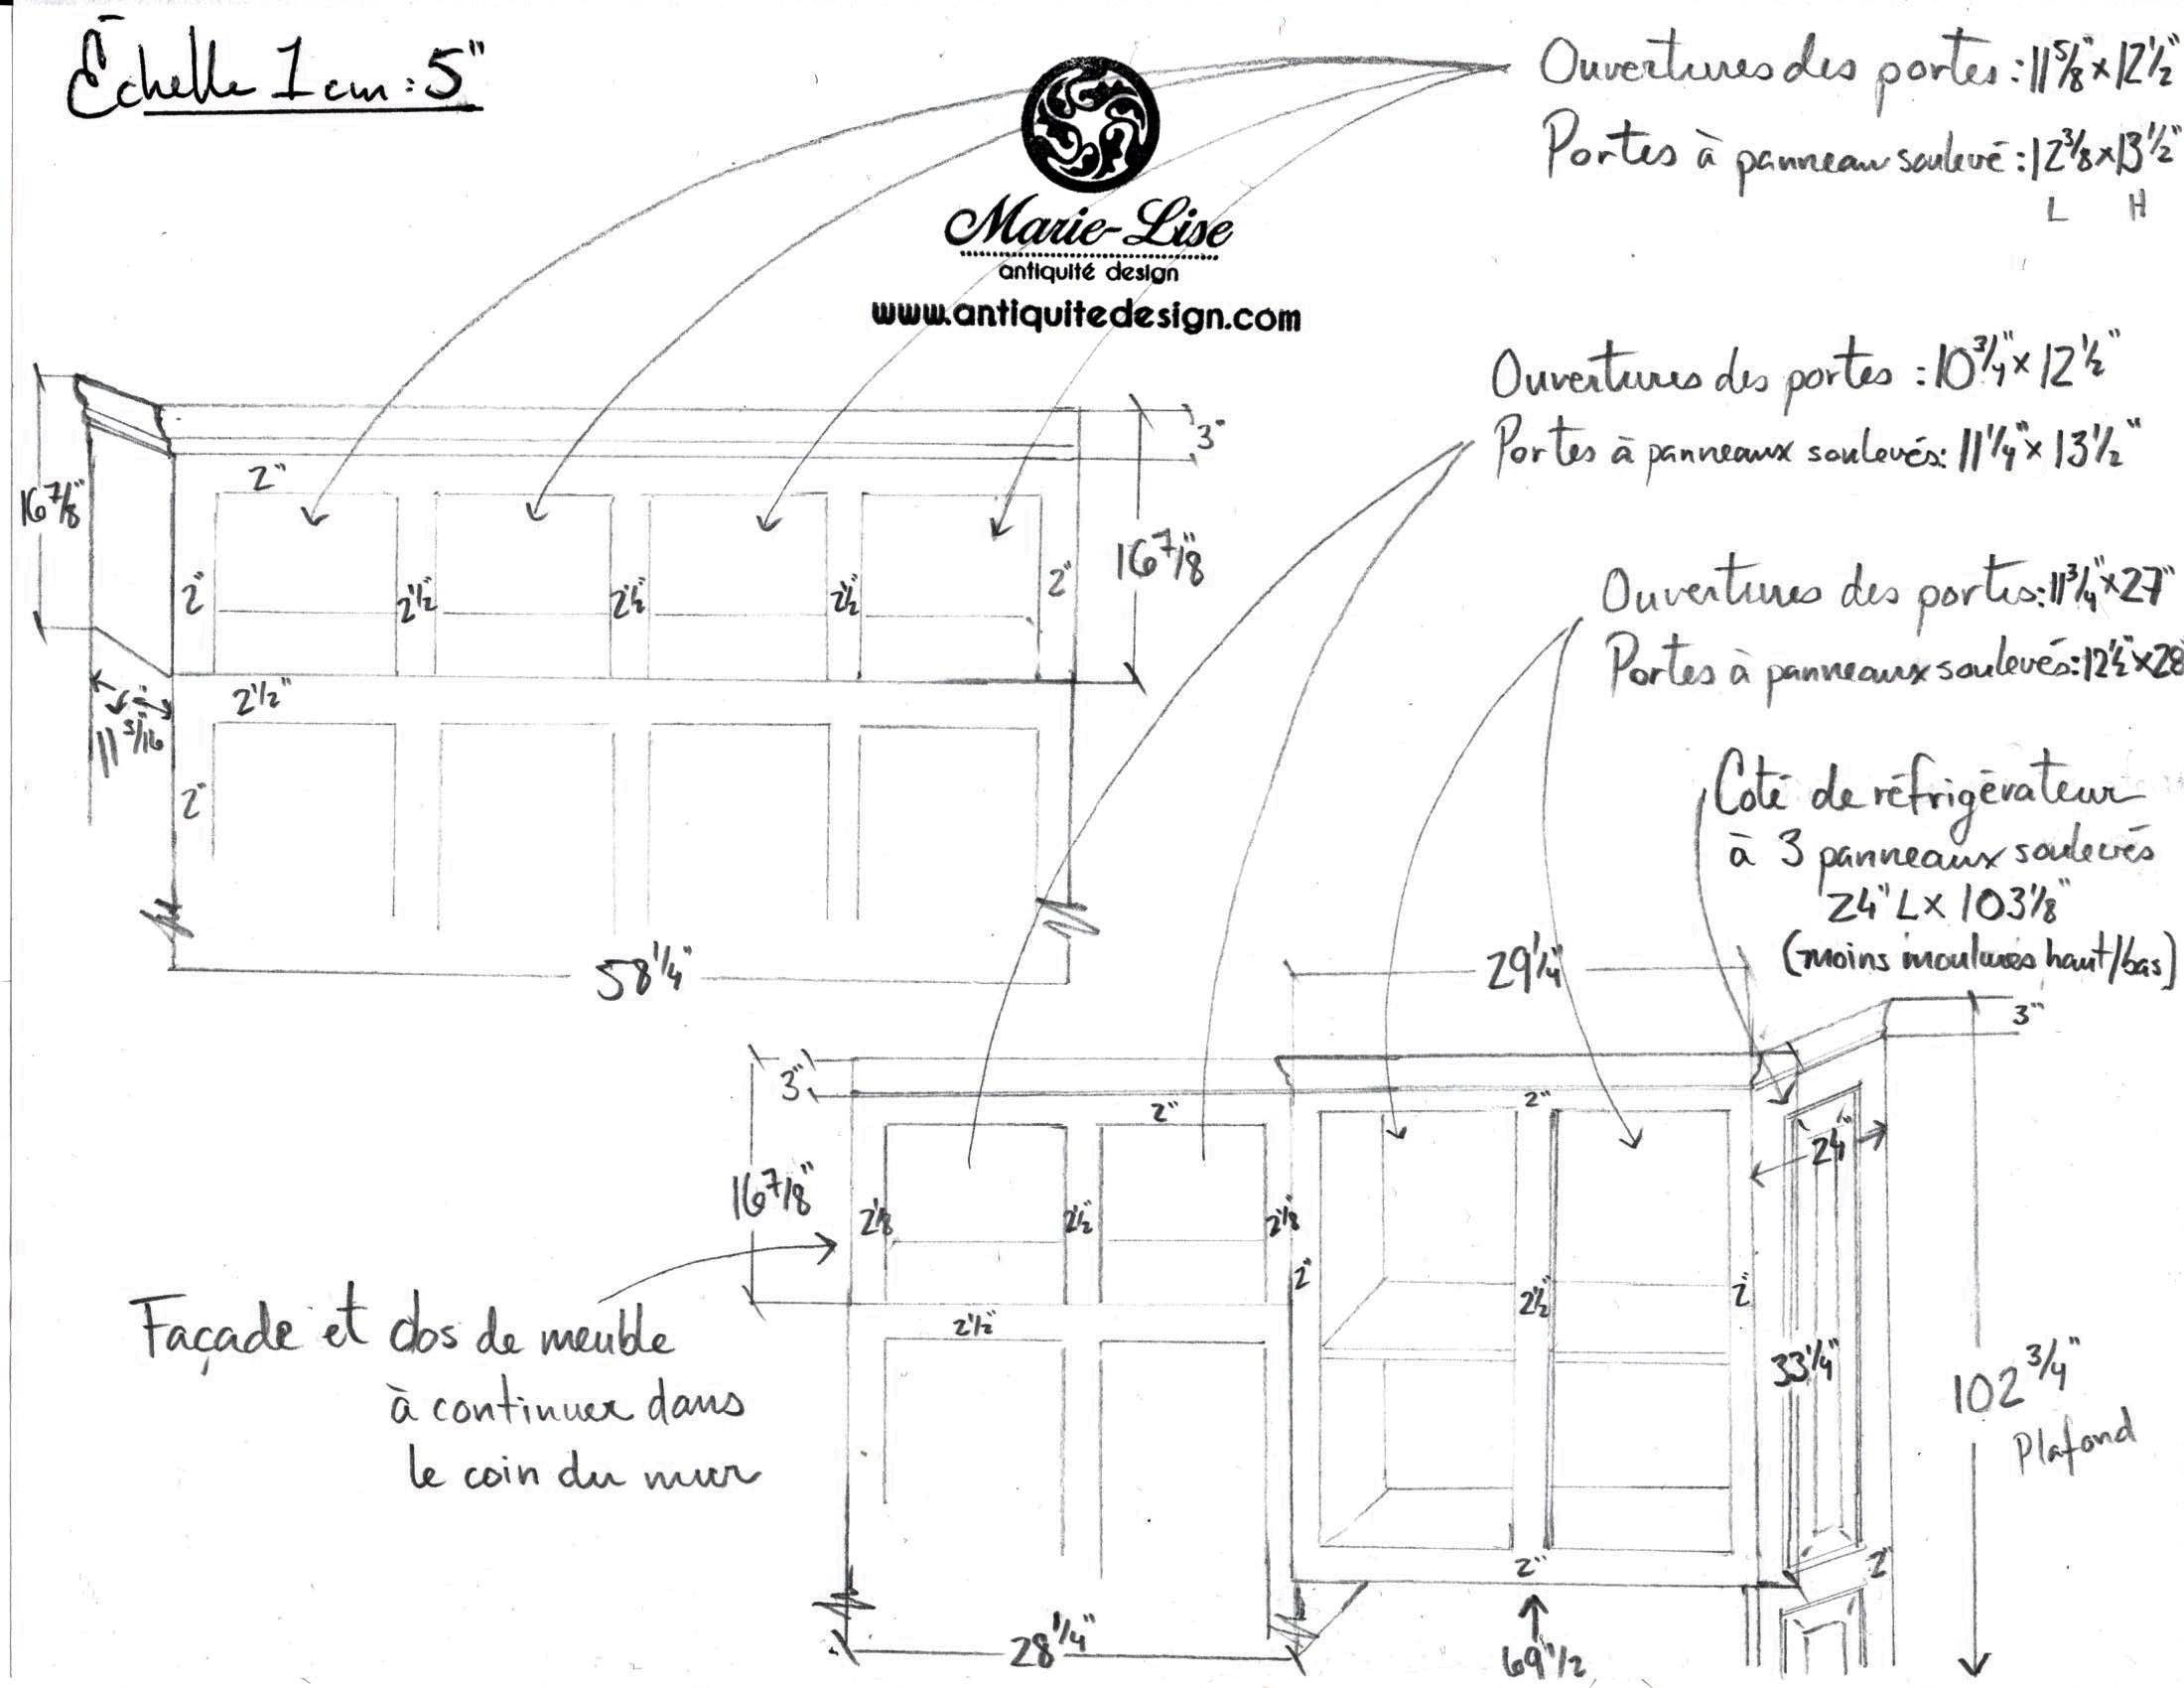 Échelle 1 cm : 5"
Ouvertures des portes : 11 5/8" x 12 1/2"
Portes à panneau soulevé : 12 3/8 x 13 1/2"
L H
Marie-Lise
antiquité design
www.antiquitedesign.com
Ouvertures des portes : 10 3/4" x 12 1/2"
Portes à panneaux soulevés: 11 1/4" x 13 1/2"
Ouvertures des portes: 11 3/4" x 27"
Portes à panneaux soulevés: 12 1/2" x 28
3"
2"
16 7/8"
16 7/8"
2"
2 1/2"
2 1/2"
2 1/2"
2"
2 1/2"
11 5/16
2"
58 1/4"
Côté de réfrigérateur
à 3 panneaux soulevés
24" L x 103 1/8"
(moins moulures haut/bas)
29 1/4"
3"
3"
2"
2"
24"
16 7/8"
2 1/8
2 1/2"
2 1/8"
2"
2 1/2"
2"
Façade et dos de meuble
à continuer dans
le coin du mur
2 1/2"
33 1/4"
102 3/4"
Plafond
2"
2"
28 1/4"
69 1/2